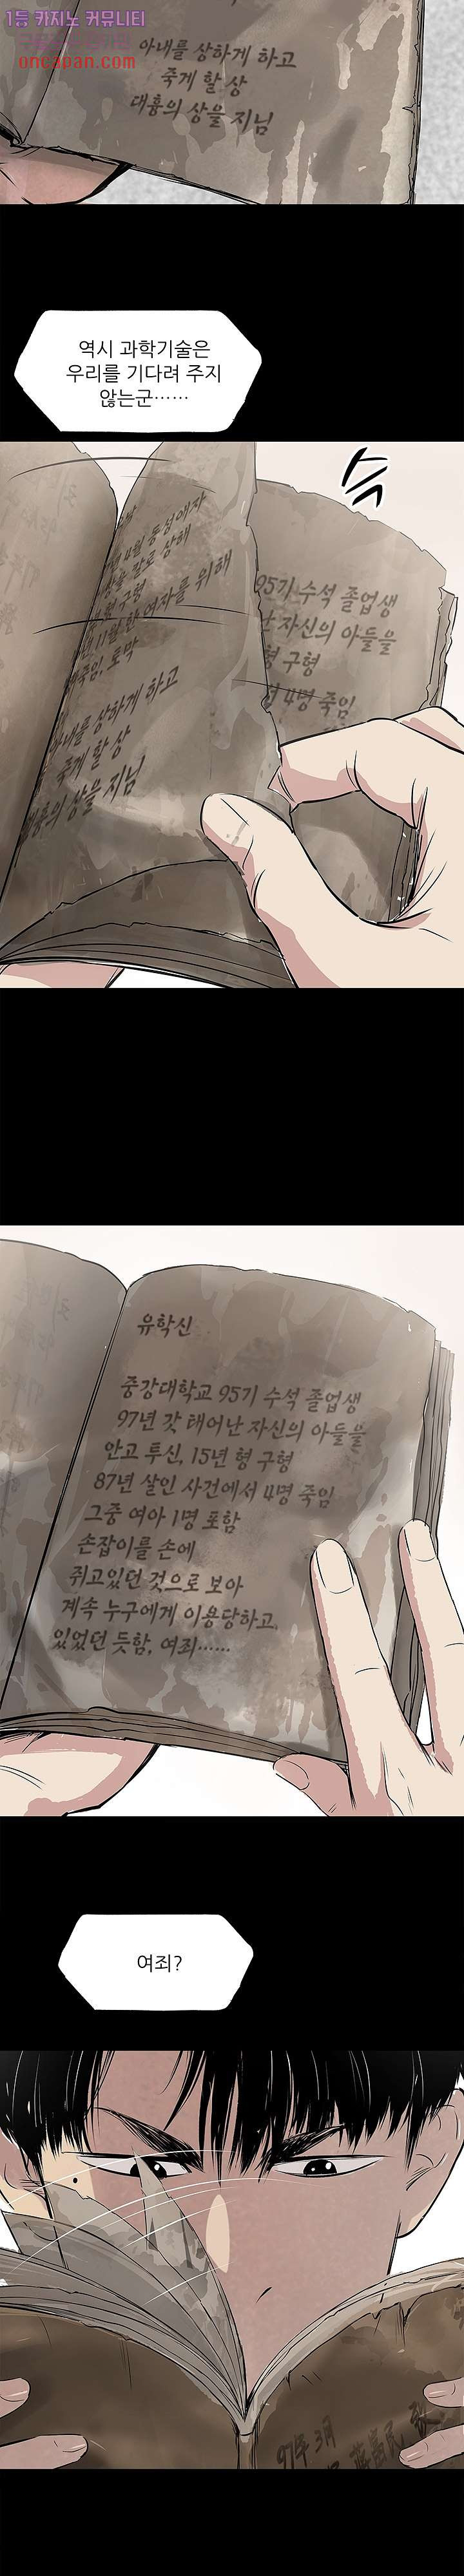 1등 카지노 커뮤니티
oncapan.com
아내를 상하게 하고
죽게 할 상
대흉의 상을 지님
역시 과학기술은
우리를 기다려 주지
않는군……
슥
4월 동성애자
상해
형 구형
11월 한 여자를 위해
죽임, 토막
아내를 상하게 하고
죽게 할 상
대흉의 상을 지님
95기 수석 졸업생
난 자신의 아들을
형 구형
4명 죽임
유학신
중강대학교 95기 수석 졸업생
97년 갓 태어난 자신의 아들을
안고 투신, 15년 형 구형
87년 살인 사건에서 4명 죽임
그중 여아 1명 포함
손잡이를 손에
쥐고있던 것으로 보아
계속 누구에게 이용당하고
있었던 듯함, 여죄……
여죄?
97年 3月